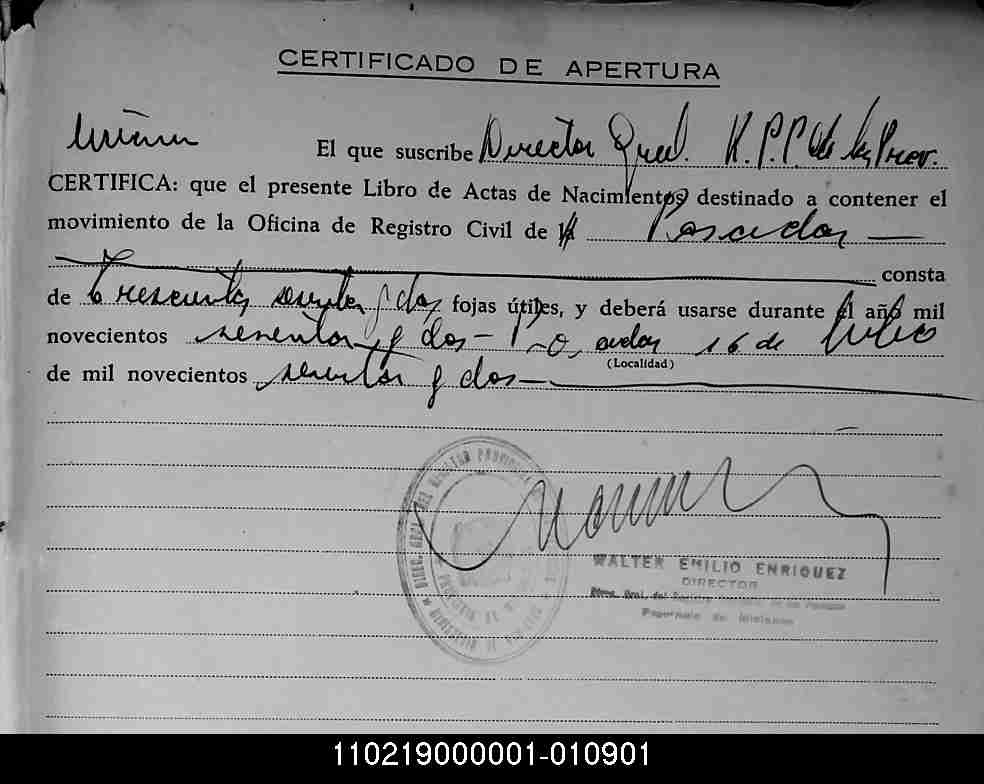 CERTIFICADO DE APERTURA
El que suscribe Director Gral. R.P.P. de las Prov.
CERTIFICA: que el presente Libro de Actas de Nacimientos destinado a contener el
movimiento de la Oficina de Registro Civil de Posadas
consta
de trescientos sesenta y dos fojas útiles, y deberá usarse durante el año mil
novecientos sesenta y dos - Posadas 16 de Julio
(Localidad)
de mil novecientos sesenta y dos
WALTER EMILIO ENRIQUEZ
DIRECTOR
110219000001-010901